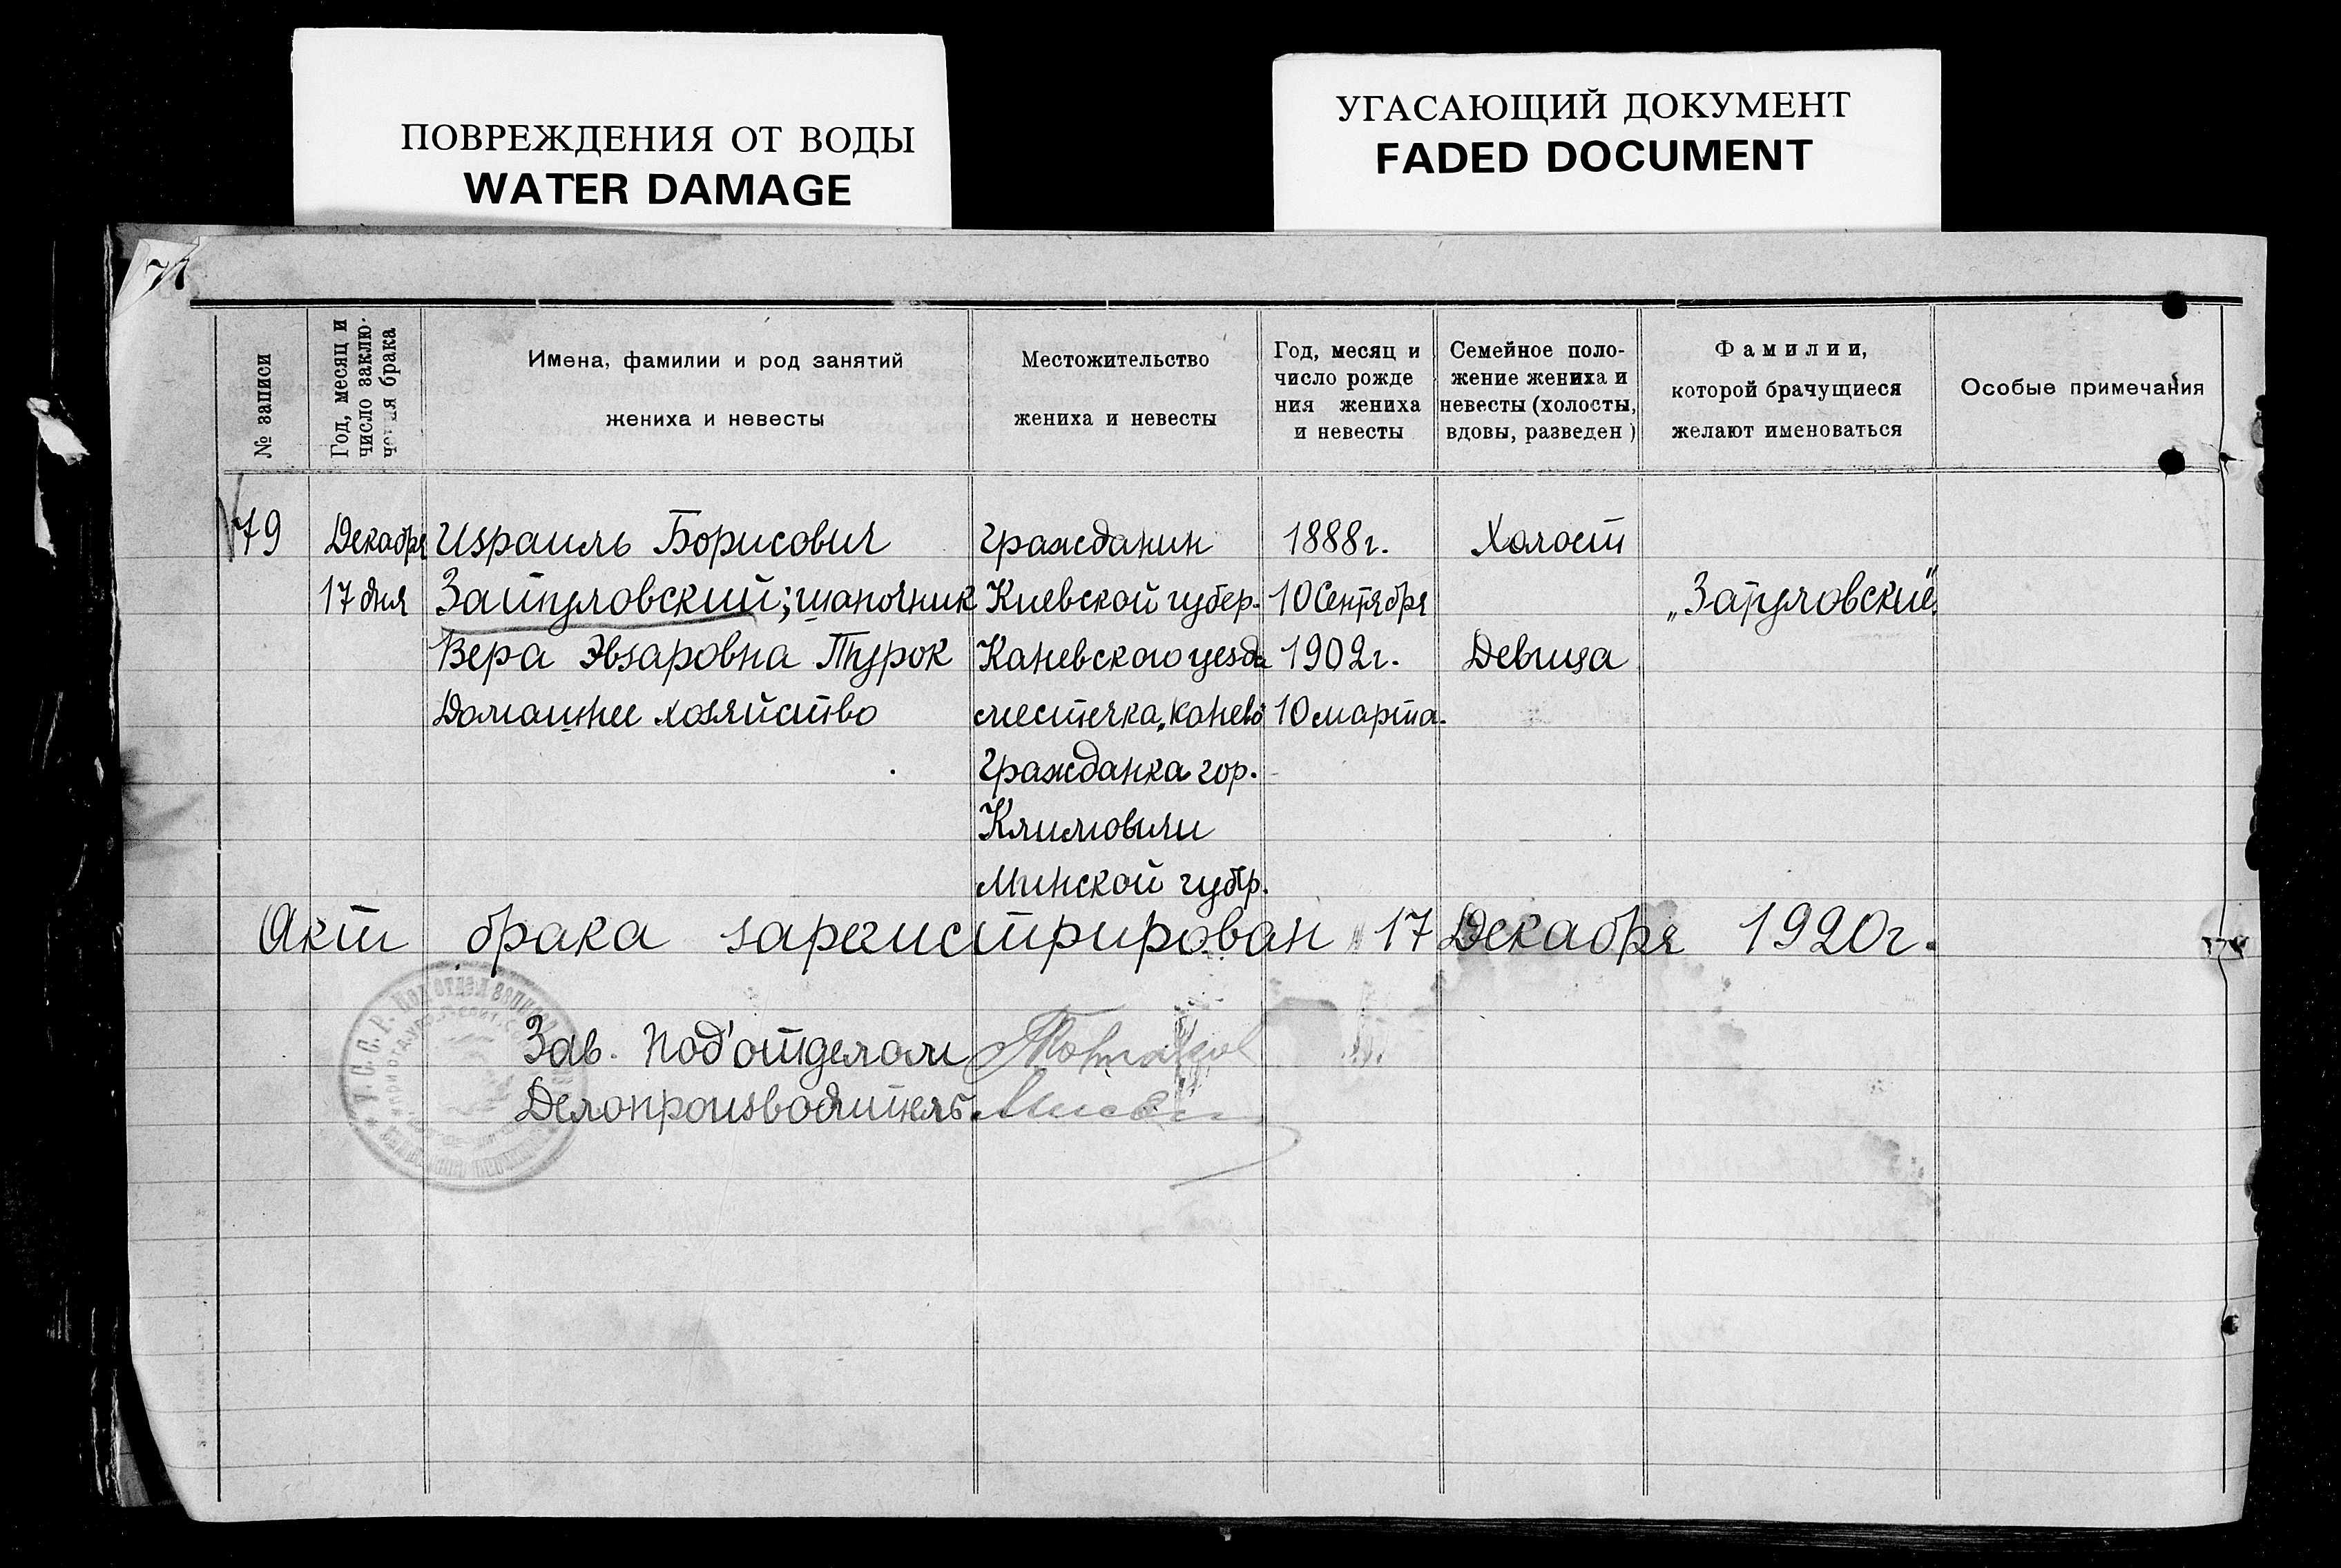 ПОВРЕЖДЕНИЯ ОТ ВОДЫ
WATER DAMAGE
УГАСАЮЩИЙ ДОКУМЕНТ
FADED DOCUMENT
71
№ записи
Год, месяц и
число заклю-
чения брака
Имена, фамилии и род занятий
жениха и невесты
Местожительство
жениха и невесты
Год, месяц и
число рожде
ния жениха
и невесты
Семейное поло-
жение жениха и
невесты (холосты,
вдовы, разведен)
Фамилии,
которой брачущиеся
желают именоваться
Особые примечания
79 Декабря Израиль Борисович Гражданин 1888г. Холост
17 дня Затуловский; шапочник Киевской губер. 10 Сентября „Затуловские"
Вера Эвзаровна Турок Каневского уезда 1902г. Девица
Домашнее хозяйство местечка „Канев" 10 марта.
Гражданка гор.
Климовичи
Минской губр.
Акт брака зарегистрирован 17 Декабря 1920г.
Зав. Под'отделом
Делопроизводитель
У.С.С.Р. Под'отдел записи